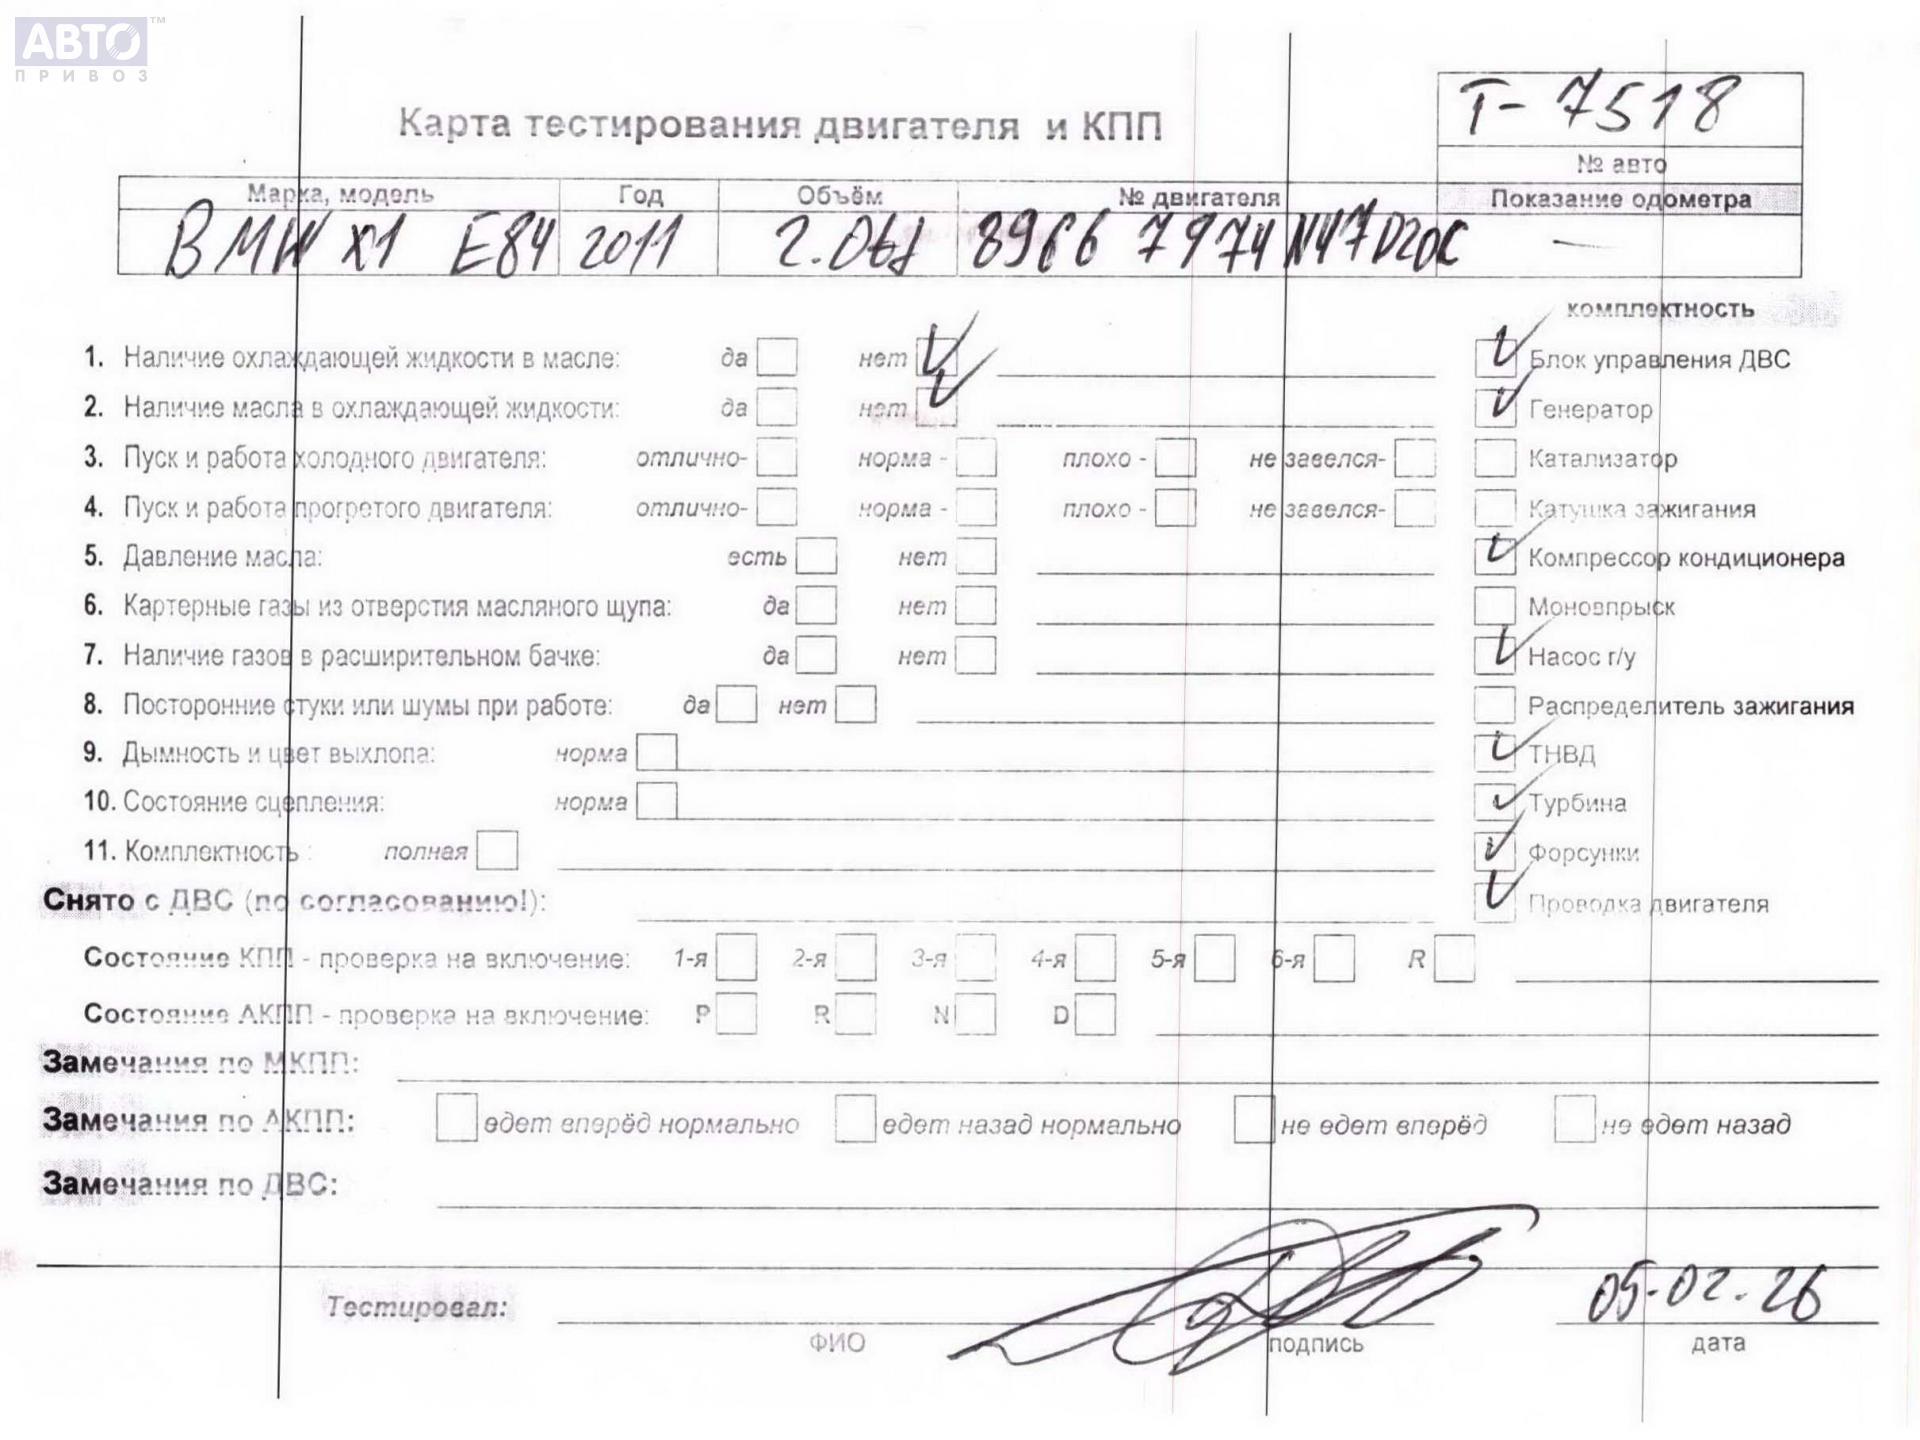 АВТО™
ПРИВОЗ
Т- 7518
№ авто
Карта тестирования двигателя и КПП
Марка, модель Год Объём № двигателя Показание одометра
BMW X1 E84 2011 8966 7974 N47D20C —
комплектность
1. Наличие охлаждающей жидкости в масле: да нет Блок управления ДВС
2. Наличие масла в охлаждающей жидкости: да нет Генератор
3. Пуск и работа холодного двигателя: отлично- норма - плохо - не завелся- Катализатор
4. Пуск и работа прогретого двигателя: отлично- норма - плохо - не завелся- Катушка зажигания
5. Давление масла: есть нет Компрессор кондиционера
6. Картерные газы из отверстия масляного щупа: да нет Моновпрыск
7. Наличие газов в расширительном бачке: да нет Насос г/у
8. Посторонние стуки или шумы при работе: да нет Распределитель зажигания
9. Дымность и цвет выхлопа: норма ТНВД
10. Состояние сцепления: норма Турбина
11. Комплектность : полная Форсунки
Снято с ДВС (по согласованию!): Проводка двигателя
Состояние КПП - проверка на включение: 1-я 2-я 3-я 4-я 5-я 6-я R
Состояние АКПП - проверка на включение: P R N D
Замечания по МКПП:
Замечания по АКПП: едет вперёд нормально едет назад нормально не едет вперёд не едет назад
Замечания по ДВС:
Тестировал: 05.02.26
ФИО подпись дата